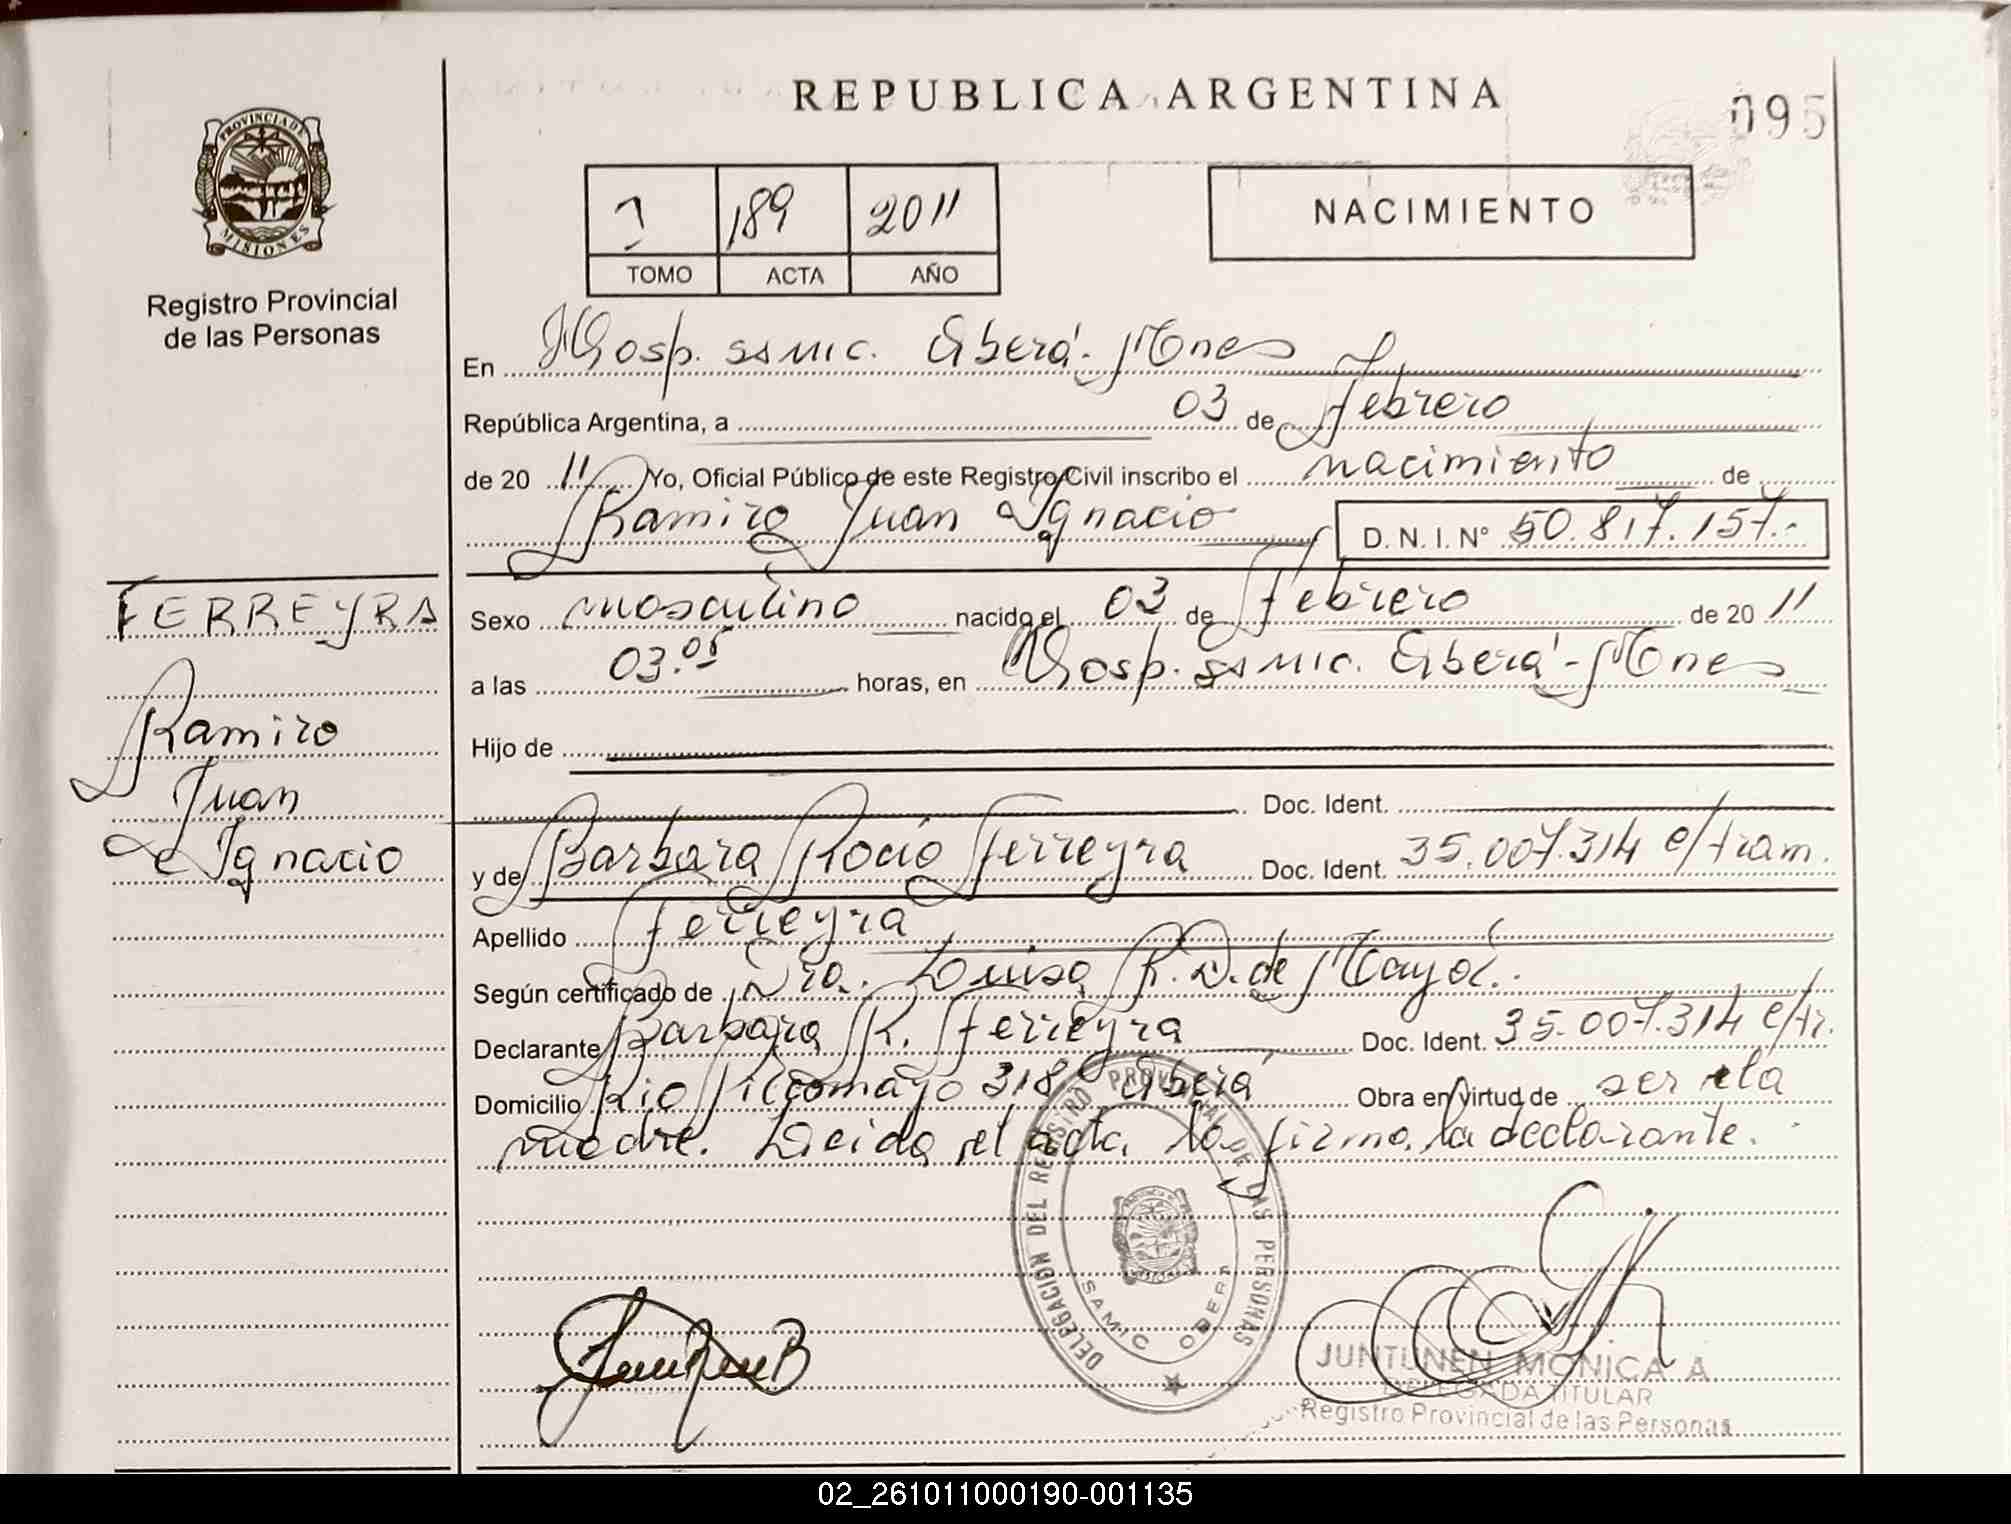 REPUBLICA ARGENTINA
095
PROVINCIA DE
MISIONES
Registro Provincial
de las Personas
1 189 2011
TOMO ACTA AÑO
NACIMIENTO
En Hosp. SAMIC. Oberá - Mnes
República Argentina, a 03 de Febrero
de 20 11 Yo, Oficial Público de este Registro Civil inscribo el nacimiento de
Ramiro Juan Ignacio D. N. I. N° 50.817.157.-
FERREYRA
Ramiro
Juan
Ignacio
Sexo masculino nacido el 03 de Febrero de 20 11
a las 03.05 horas, en Hosp. SAMIC. Oberá - Mnes
Hijo de
Doc. Ident.
y de Barbara Rocio Ferreyra Doc. Ident. 35.007.314 e/tram.
Apellido Ferreyra
Según certificado de Dra. Luisa R. D. de Mayol.
Declarante Barbara R. Ferreyra Doc. Ident. 35.007.314 e/tr.
Domicilio Rio Pilcomayo 318 Oberá Obra en virtud de ser ela
madre. Leida el acta la firma la declarante.
DELEGACION DEL REGISTRO PROVINCIAL DE LAS PERSONAS
SAMIC OBERA
JUNTUNEN MONICA A
DELEGADA TITULAR
Registro Provincial de las Personas
02_261011000190-001135